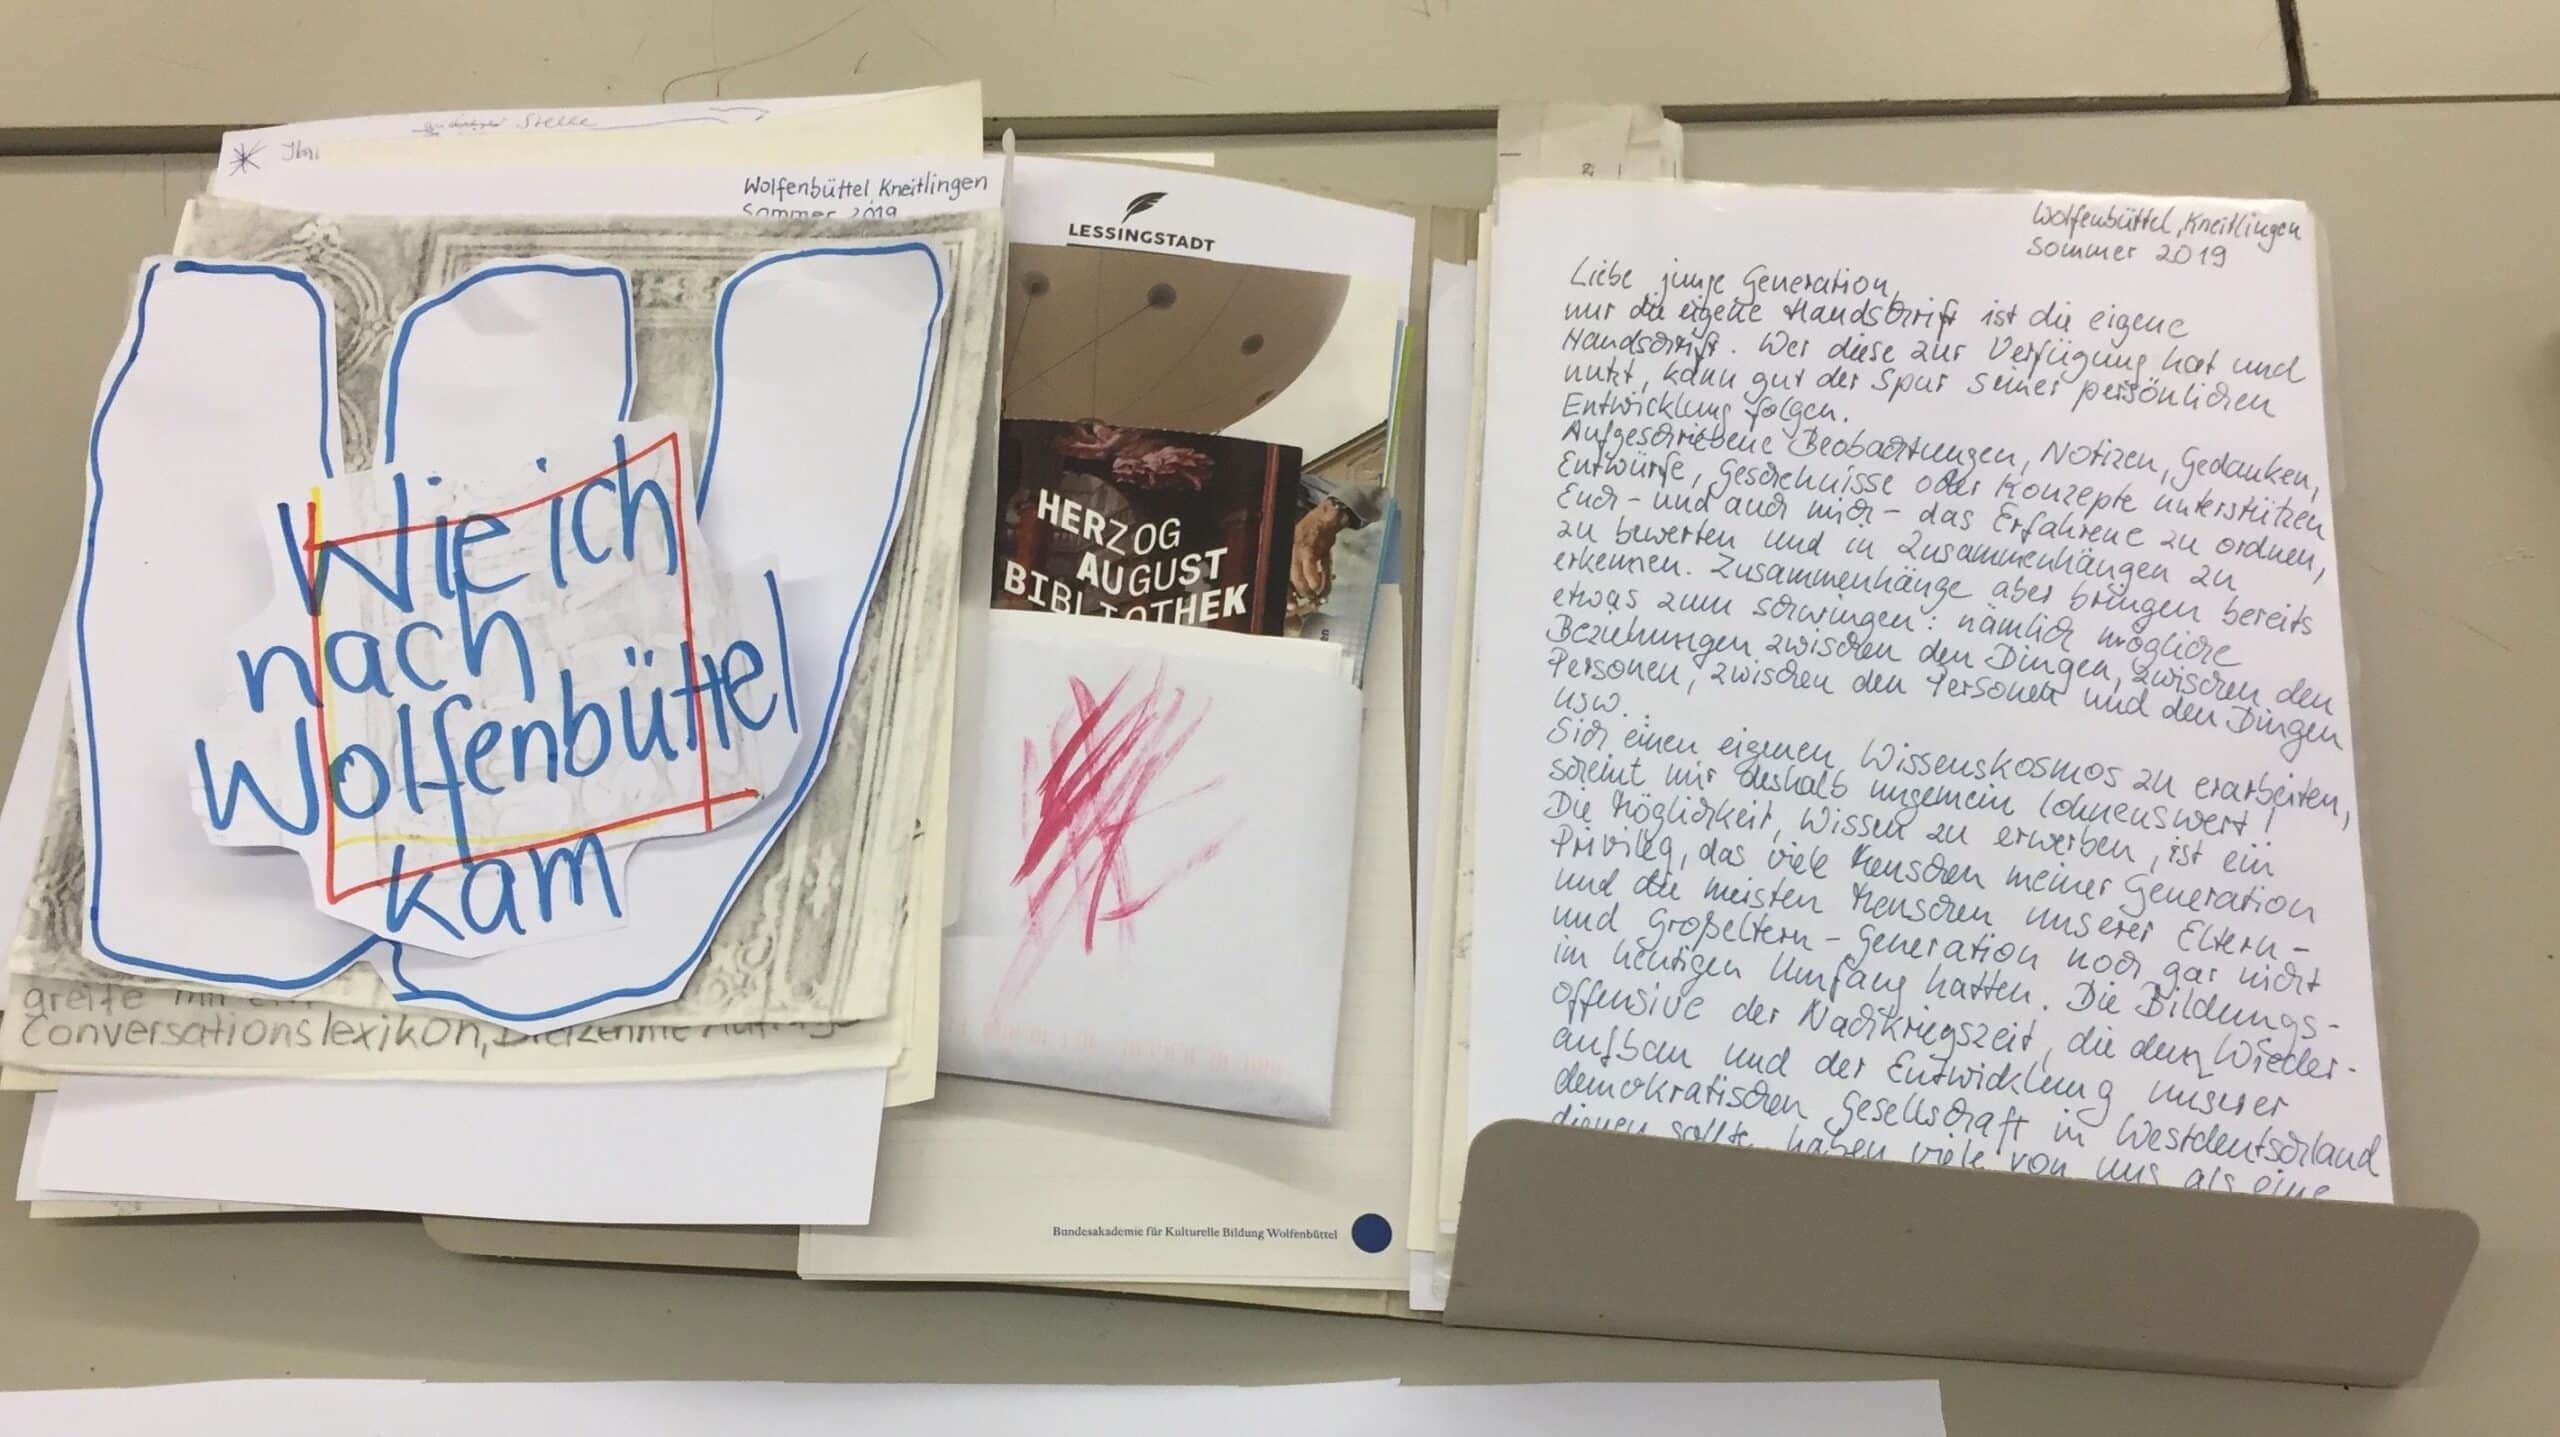 Stelle
Wolfenbüttel, Kneitlingen
Sommer 2019
Wie ich
nach
Wolfenbüttel
kam
greife mit
Conversationslexikon, Dreizehnte Auflage
LESSINGSTADT
HERZOG
AUGUST
BIBLIOTHEK
Bundesakademie für Kulturelle Bildung Wolfenbüttel
Wolfenbüttel, Kneitlingen
Sommer 2019
Liebe junge Generation,
nur die eigene Handschrift ist die eigene
Handschrift. Wer diese zur Verfügung hat und
nutzt, kann gut der Spur seiner persönlichen
Entwicklung folgen.
Aufgeschriebene Beobachtungen, Notizen, Gedanken,
Entwürfe, Geschehnisse oder Konzepte unterstützen
Euch - und auch mich - das Erfahrene zu ordnen,
zu bewerten und in Zusammenhängen zu
erkennen. Zusammenhänge aber bringen bereits
etwas zum schwingen: nämlich mögliche
Beziehungen zwischen den Dingen, zwischen den
Personen, zwischen den Personen und den Dingen
usw..
Sich einen eigenen Wissenskosmos zu erarbeiten,
scheint mir deshalb ungemein lohnenswert!
Die Möglichkeit, Wissen zu erwerben, ist ein
Privileg, das viele Menschen meiner Generation
und die meisten Menschen unserer Eltern-
und Großeltern-Generation noch gar nicht
im heutigen Umfang hatten. Die Bildungs-
offensive der Nachkriegszeit, die dem Wieder-
aufbau und der Entwicklung unserer
demokratischen Gesellschaft in Westdeutschland
dienen sollte, haben viele von uns als eine